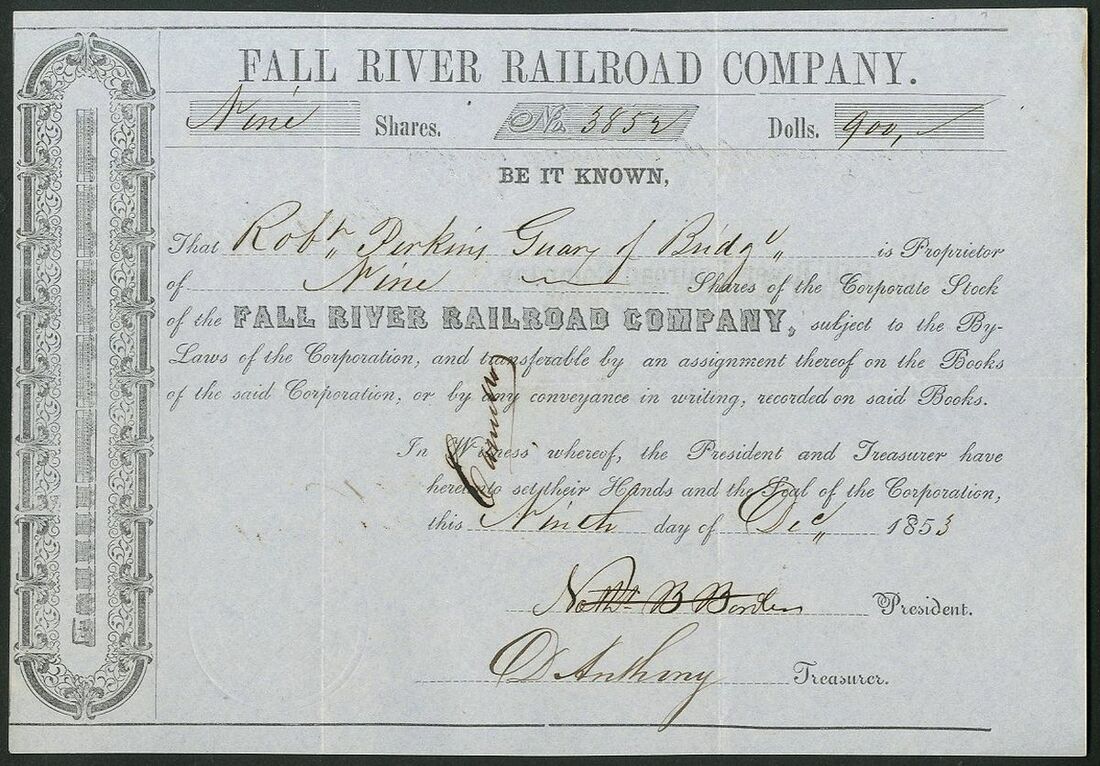 FALL RIVER RAILROAD COMPANY.
Nine Shares. No. 3852 Dolls. 900,
BE IT KNOWN,
That Robt. Perkins Guar. of Bridg. is Proprietor
of Nine Shares of the Corporate Stock
of the FALL RIVER RAILROAD COMPANY, subject to the By-
Laws of the Corporation, and transferable by an assignment thereof on the Books
of the said Corporation, or by any conveyance in writing, recorded on said Books.
In Witness whereof, the President and Treasurer have
hereunto set their Hands and the Seal of the Corporation,
this Ninth day of Dec, 1853
Nathl B Borden President.
D Anthony Treasurer.